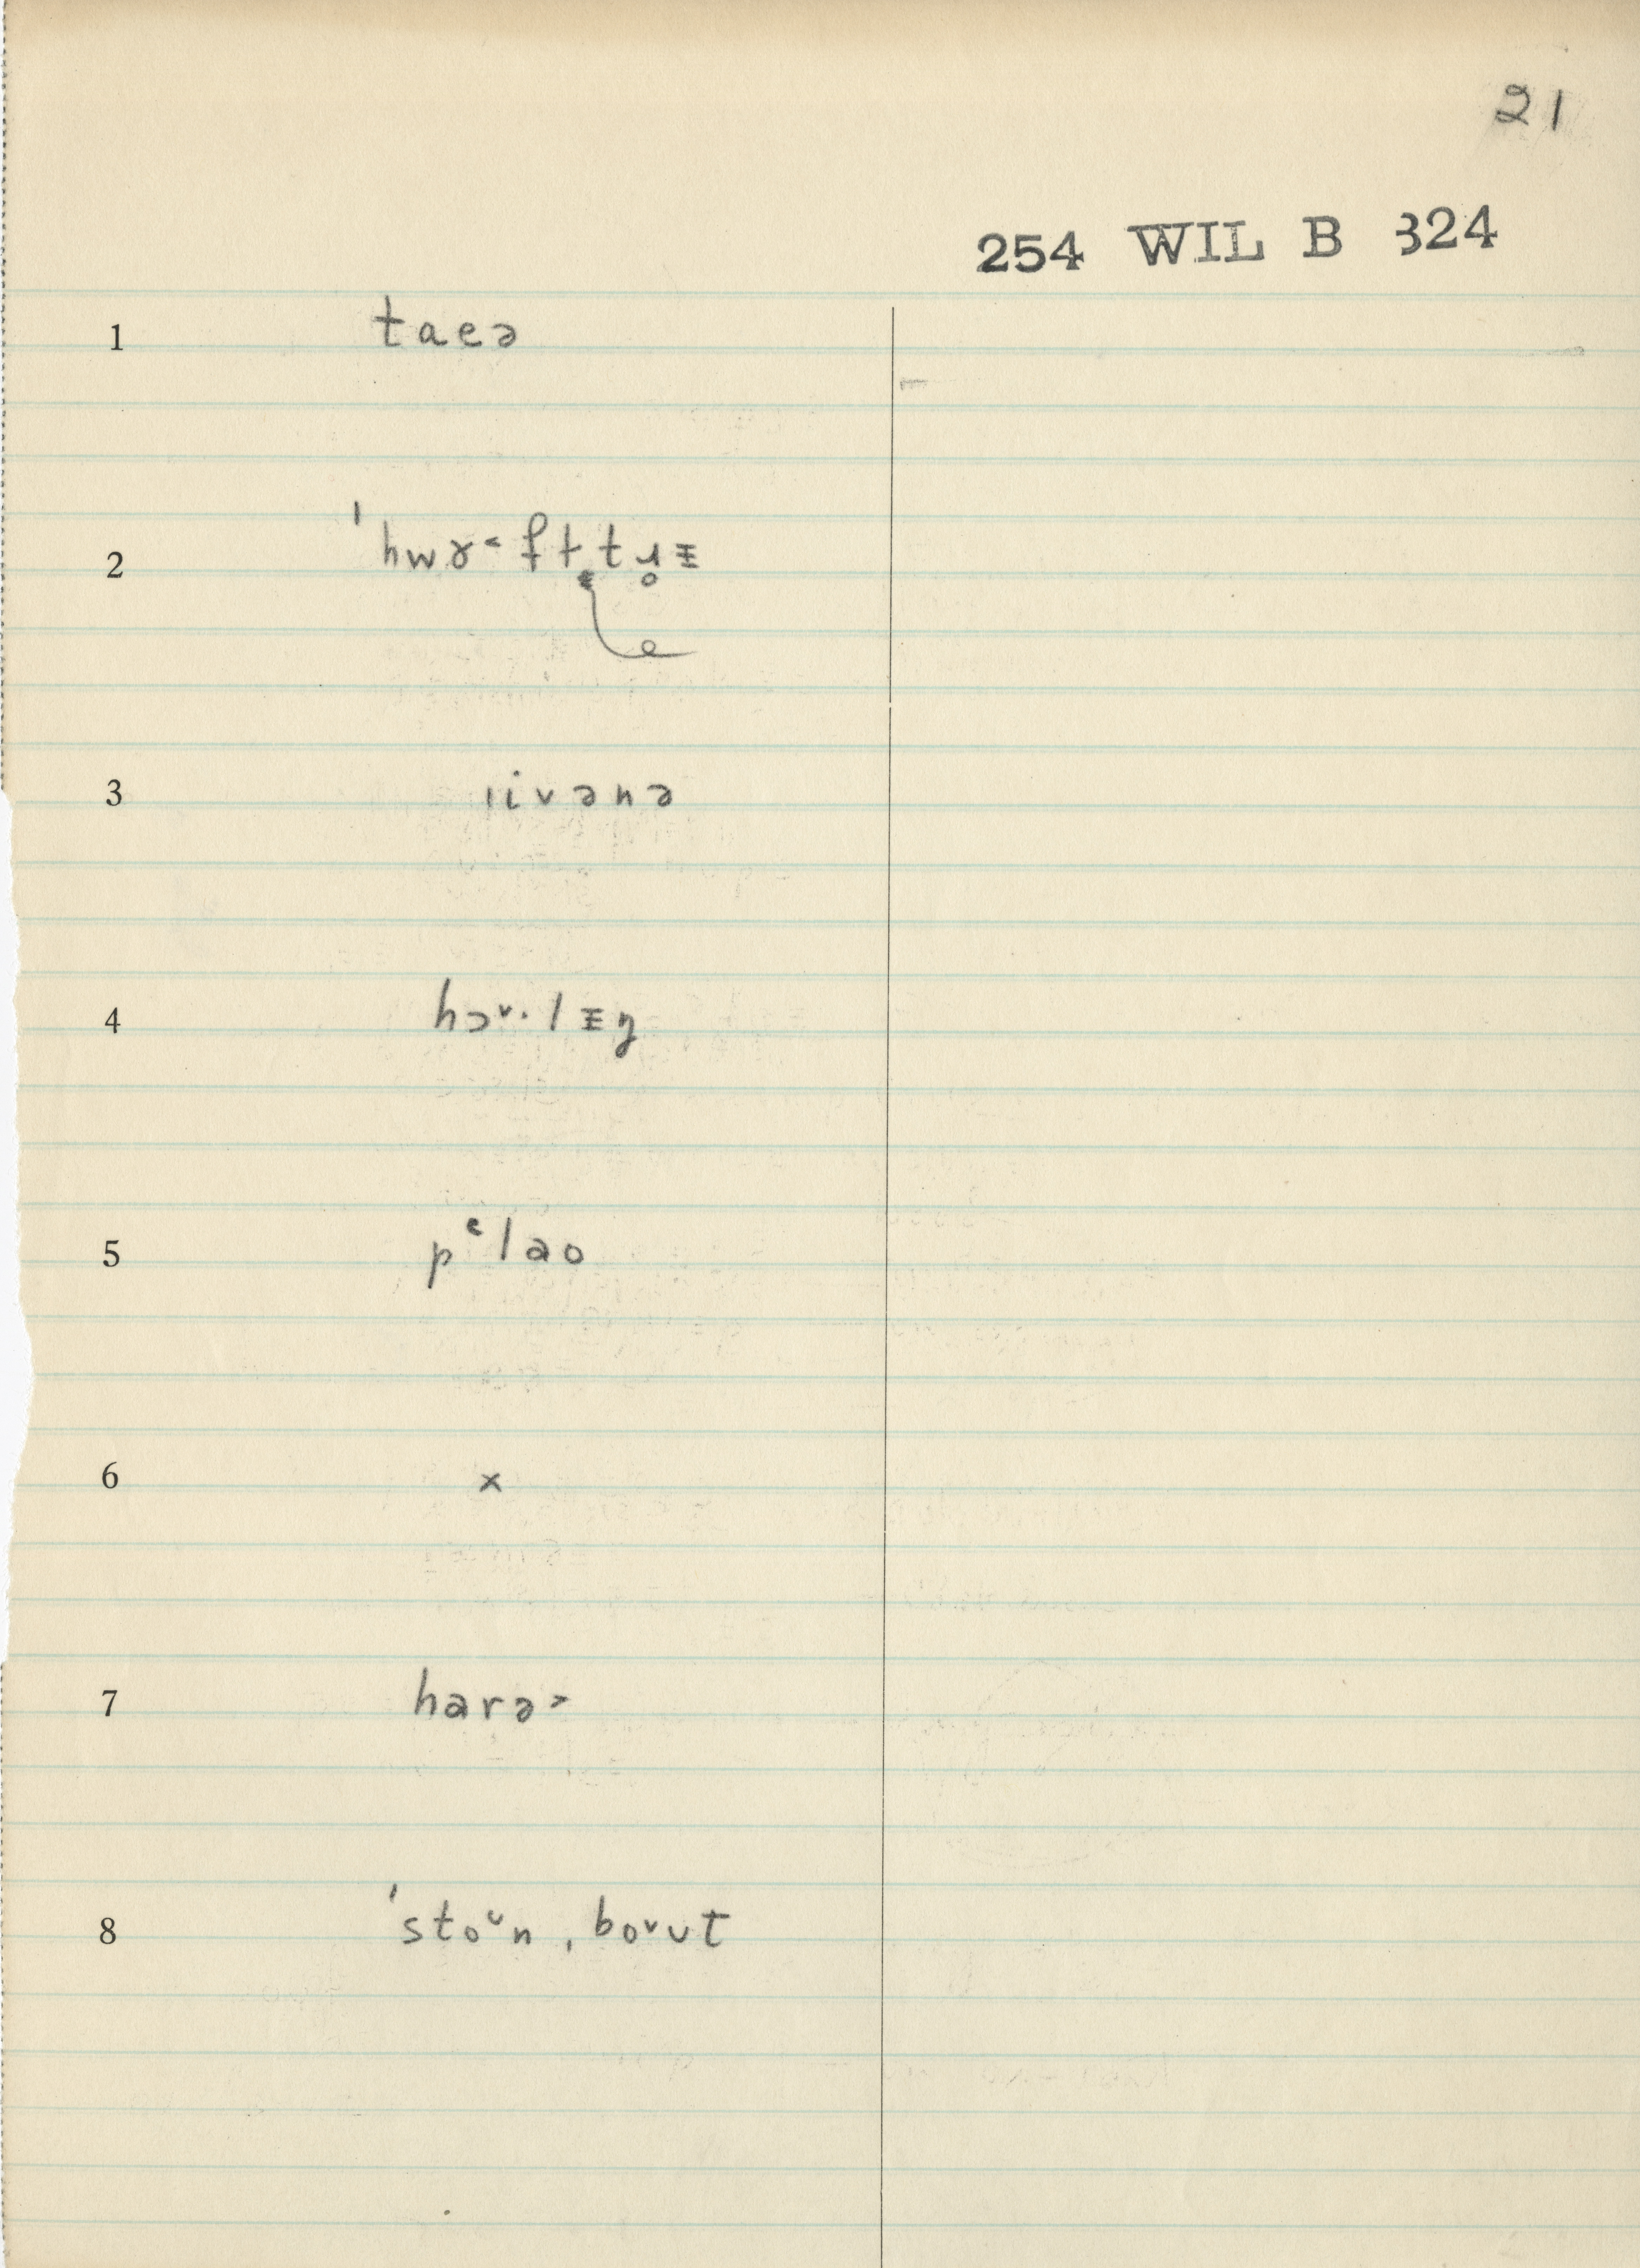 21
254 WIL B 324
1 taeə
2 ˈhwɤ˂ fƚ t ɹ̥ ɪ
3 ıivənə
4 hɔ˅·lɪŋ
5 pᵋlao
6 ×
7 harə˃
8 ˈsto˅n, bo˅ut